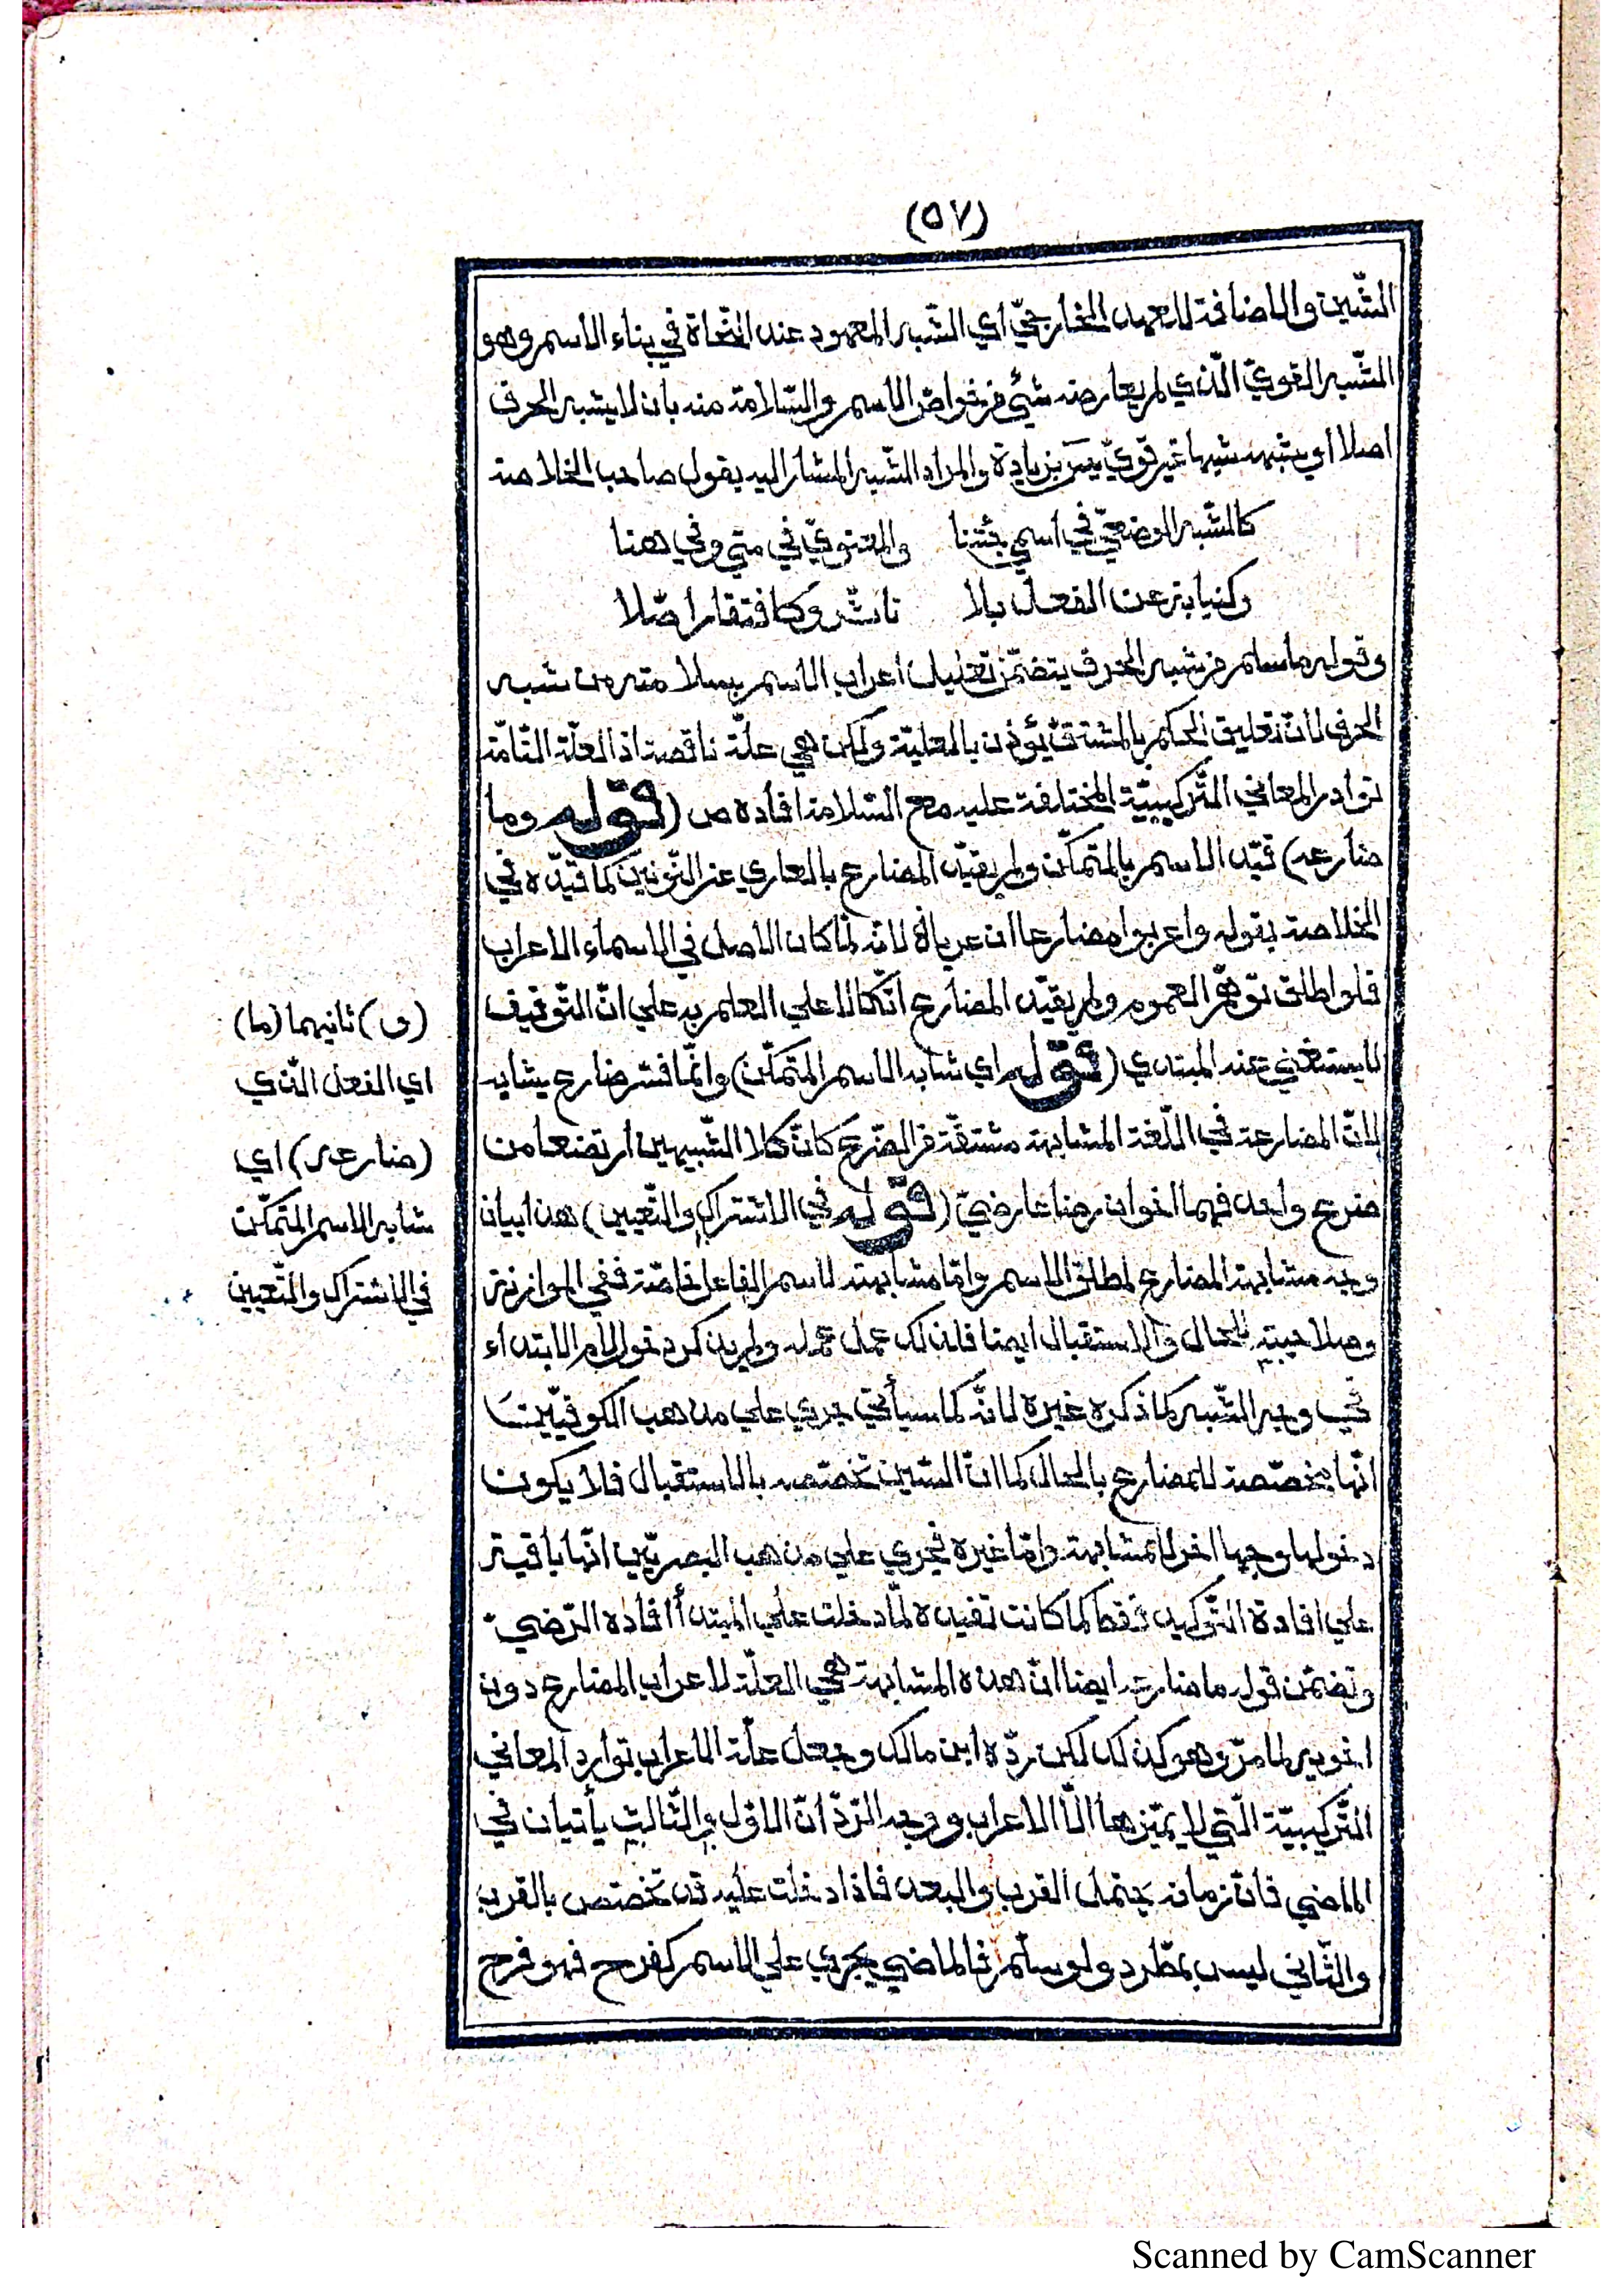 (٥٧)
الشّين والاضافة للعهد الخارجيّ اي الشّبه المعهود عند النّحاة في بناء الاسم وهو
الشّبه القويّ الّذي لم يعارضه شيْ من خواصّ الاسم والسّلامة منه بان لا يشبه الحرف
اصلا او يشبهه شبها غير قويّ يس بزيادة والمراد الشّبه المشار اليه بقول صاحب الخلاصة
كالشّبه الوضعيّ في اسمي جئتنا والمعنويّ في متي وفي هنا
وكنيابة عن الفعل بلا تاثّر وكافتقار اصّلا
وقوله ما سلم من شبه الحرف يتضمّن تعليل اعراب الاسم بسلامته من شبه
الحرف لانّ تعليق الحكم بالمشتقّ يؤذن بالعليّة ولكن هي علّة ناقصة اذ العلّة التّامّة
توارد المعاني التّركيبيّة المختلفة عليه مع السّلامة افاده ص (قوله وما
ضارعه) قيّد الاسم بالمتمكّن ولم يقيّد المضارع بالعاري عن النّونين كما قيّده في
الخلاصة بقوله واعربوا مضارعا ان عريا لانّه لمّا كان الاصل في الاسماء الاعراب
فلو اطلق توهّم العموم ولم يقيّد المضارع اتّكالا علي العلم به علي انّ التّوقيف
لا يستغني عنه المبتدي (قوله اي شابه الاسم المتمكّن) وانّما فسّر ضارع بشابه
لانّ المضارعة في اللّغة المشابهة مشتقّة من الضّرع كانّ كلا الشّبيهين ارتضعا من
ضرع واحد فهما اخوان رضاعا رضيّ (قوله في الاشتراك والتّعيين) هذا بيان
وجه مشابهة المضارع لمطلق الاسم وامّا مشابهته لاسم الفاعل خاصّة ففي الموازنة
وصلاحيته للحال والاستقبال ايضا فلذلك عمل عمله ولم يذكر دخول لام الابتداء
في وجه الشّبه كما ذكره غيره لانّه كما سيأتي جري علي مذهب الكوفيّين
انّها مخصّصة للمضارع بالحال كما انّ السّين تخصّصه بالاستقبال فلا يكون
دخولها وجها اخر للمشابهة وامّا غيره فجري علي مذهب البصريّين انّها باقية
علي افادة التّوكيد فقط كما كانت تفيده لمّا دخلت علي المبتدأ افاده الرّضيّ
وتضمّن قوله ما ضارعه ايضا انّ هذه المشابهة هي العلّة لاعراب المضارع دون
اخويه لما مرّ وهو كذلك لكن ردّه ابن مالك وجعل علّة الاعراب توارد المعاني
التّركيبيّة الّتي لا يميّزها الّا الاعراب ووجه الرّدّ انّ الاوّل والثّالث يأتيان في
الماضي فانّ زمانه يحتمل القرب والبعد فاذا دخلت عليه قد تخصّص بالقرب
والثّاني ليس بمطّرد ولو سلّم فالماضي يجري علي الاسم كفرح فهو فرح
(و) ثانيهما (ما)
اي الفعل الّذي
(ضارعه) اي
شابه الاسم المتمكّن
في الاشتراك والتّعيين
Scanned by CamScanner